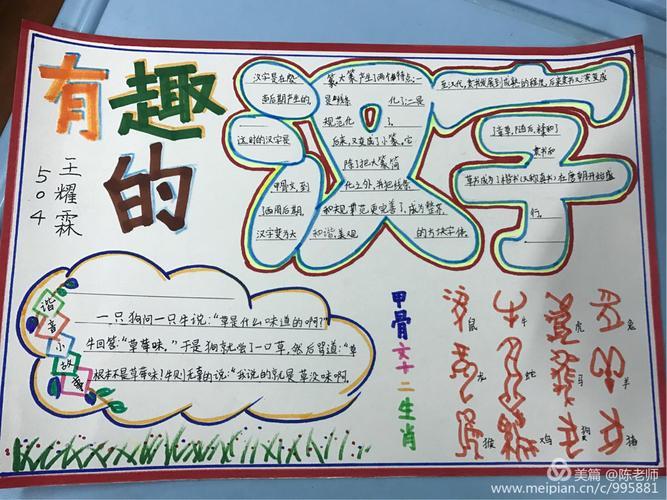 有趣的
汉字
王耀霖
504
汉字是在殷
商后期产生的,
这时的汉字是
甲骨文,到
了西周后期,
汉字变为大
篆,大篆产生了两个特点:一
是线条
化了,二是
规范化
了。
后来,又变成了小篆,它
除了把大篆简
化之外,并把线条
和规范更完善了,成为整齐
和谐、美观
的方块字体。
在汉代,隶书发展到成熟的
后来隶书又演变成
了章草,
隶书和
草书成为了楷书(又称真书)在唐朝开始盛
行。
谐音小故事
一只狗问一只牛说:“草是什么味道的啊?”
牛回答:“草莓味。”于是狗就尝了一口草,然后骂道:“草
根本不是草莓味!牛则无辜的说:“我说的就是草没味啊。
甲骨文十二生肖
鼠 牛 虎 兔
龙 蛇 马 羊
猴 鸡 狗 猪
美篇 @陈老师
www.meipian.cn/c/995881